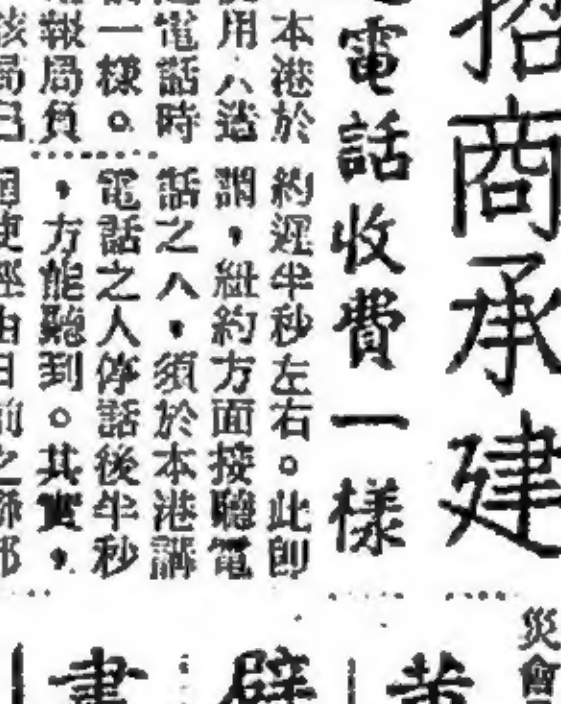 招商承建
電話收費一樣
災會
本港於
用人造
電話時
一樣。
報局負
該局已
約遲半秒左右。此即
謂，紐約方面接聽電
話之人，須於本港講
電話之人停話後半秒
，方能聽到。其實，
經由目前之